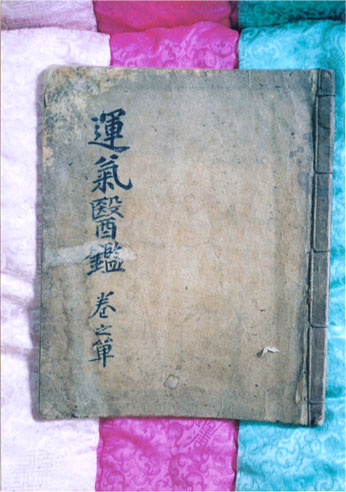 運氣醫鑑 卷之單